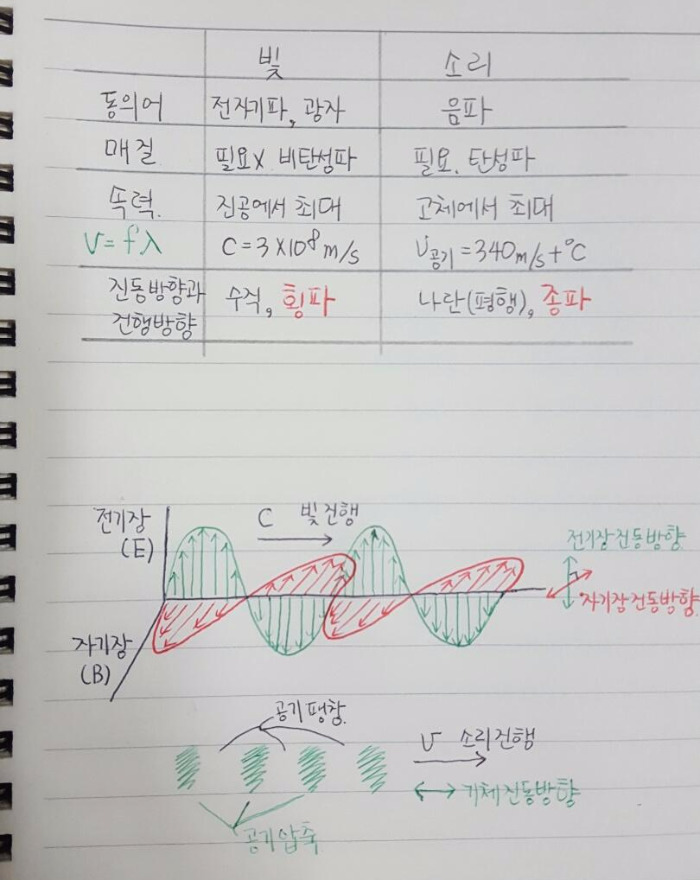 빛 소리
동의어 전자기파, 광자 음파
매질 필요X 비탄성파 필요, 탄성파
속력. 진공에서 최대 고체에서 최대
V=fλ C=3×10⁸m/s V공기=340m/s+℃
진동방향과 수직, 횡파 나란(평행), 종파
진행방향
전기장 C 빛진행 전기장진동방향
(E)
자기장진동방향
자기장
(B)
공기팽창
V 소리진행
기체진동방향
공기압축